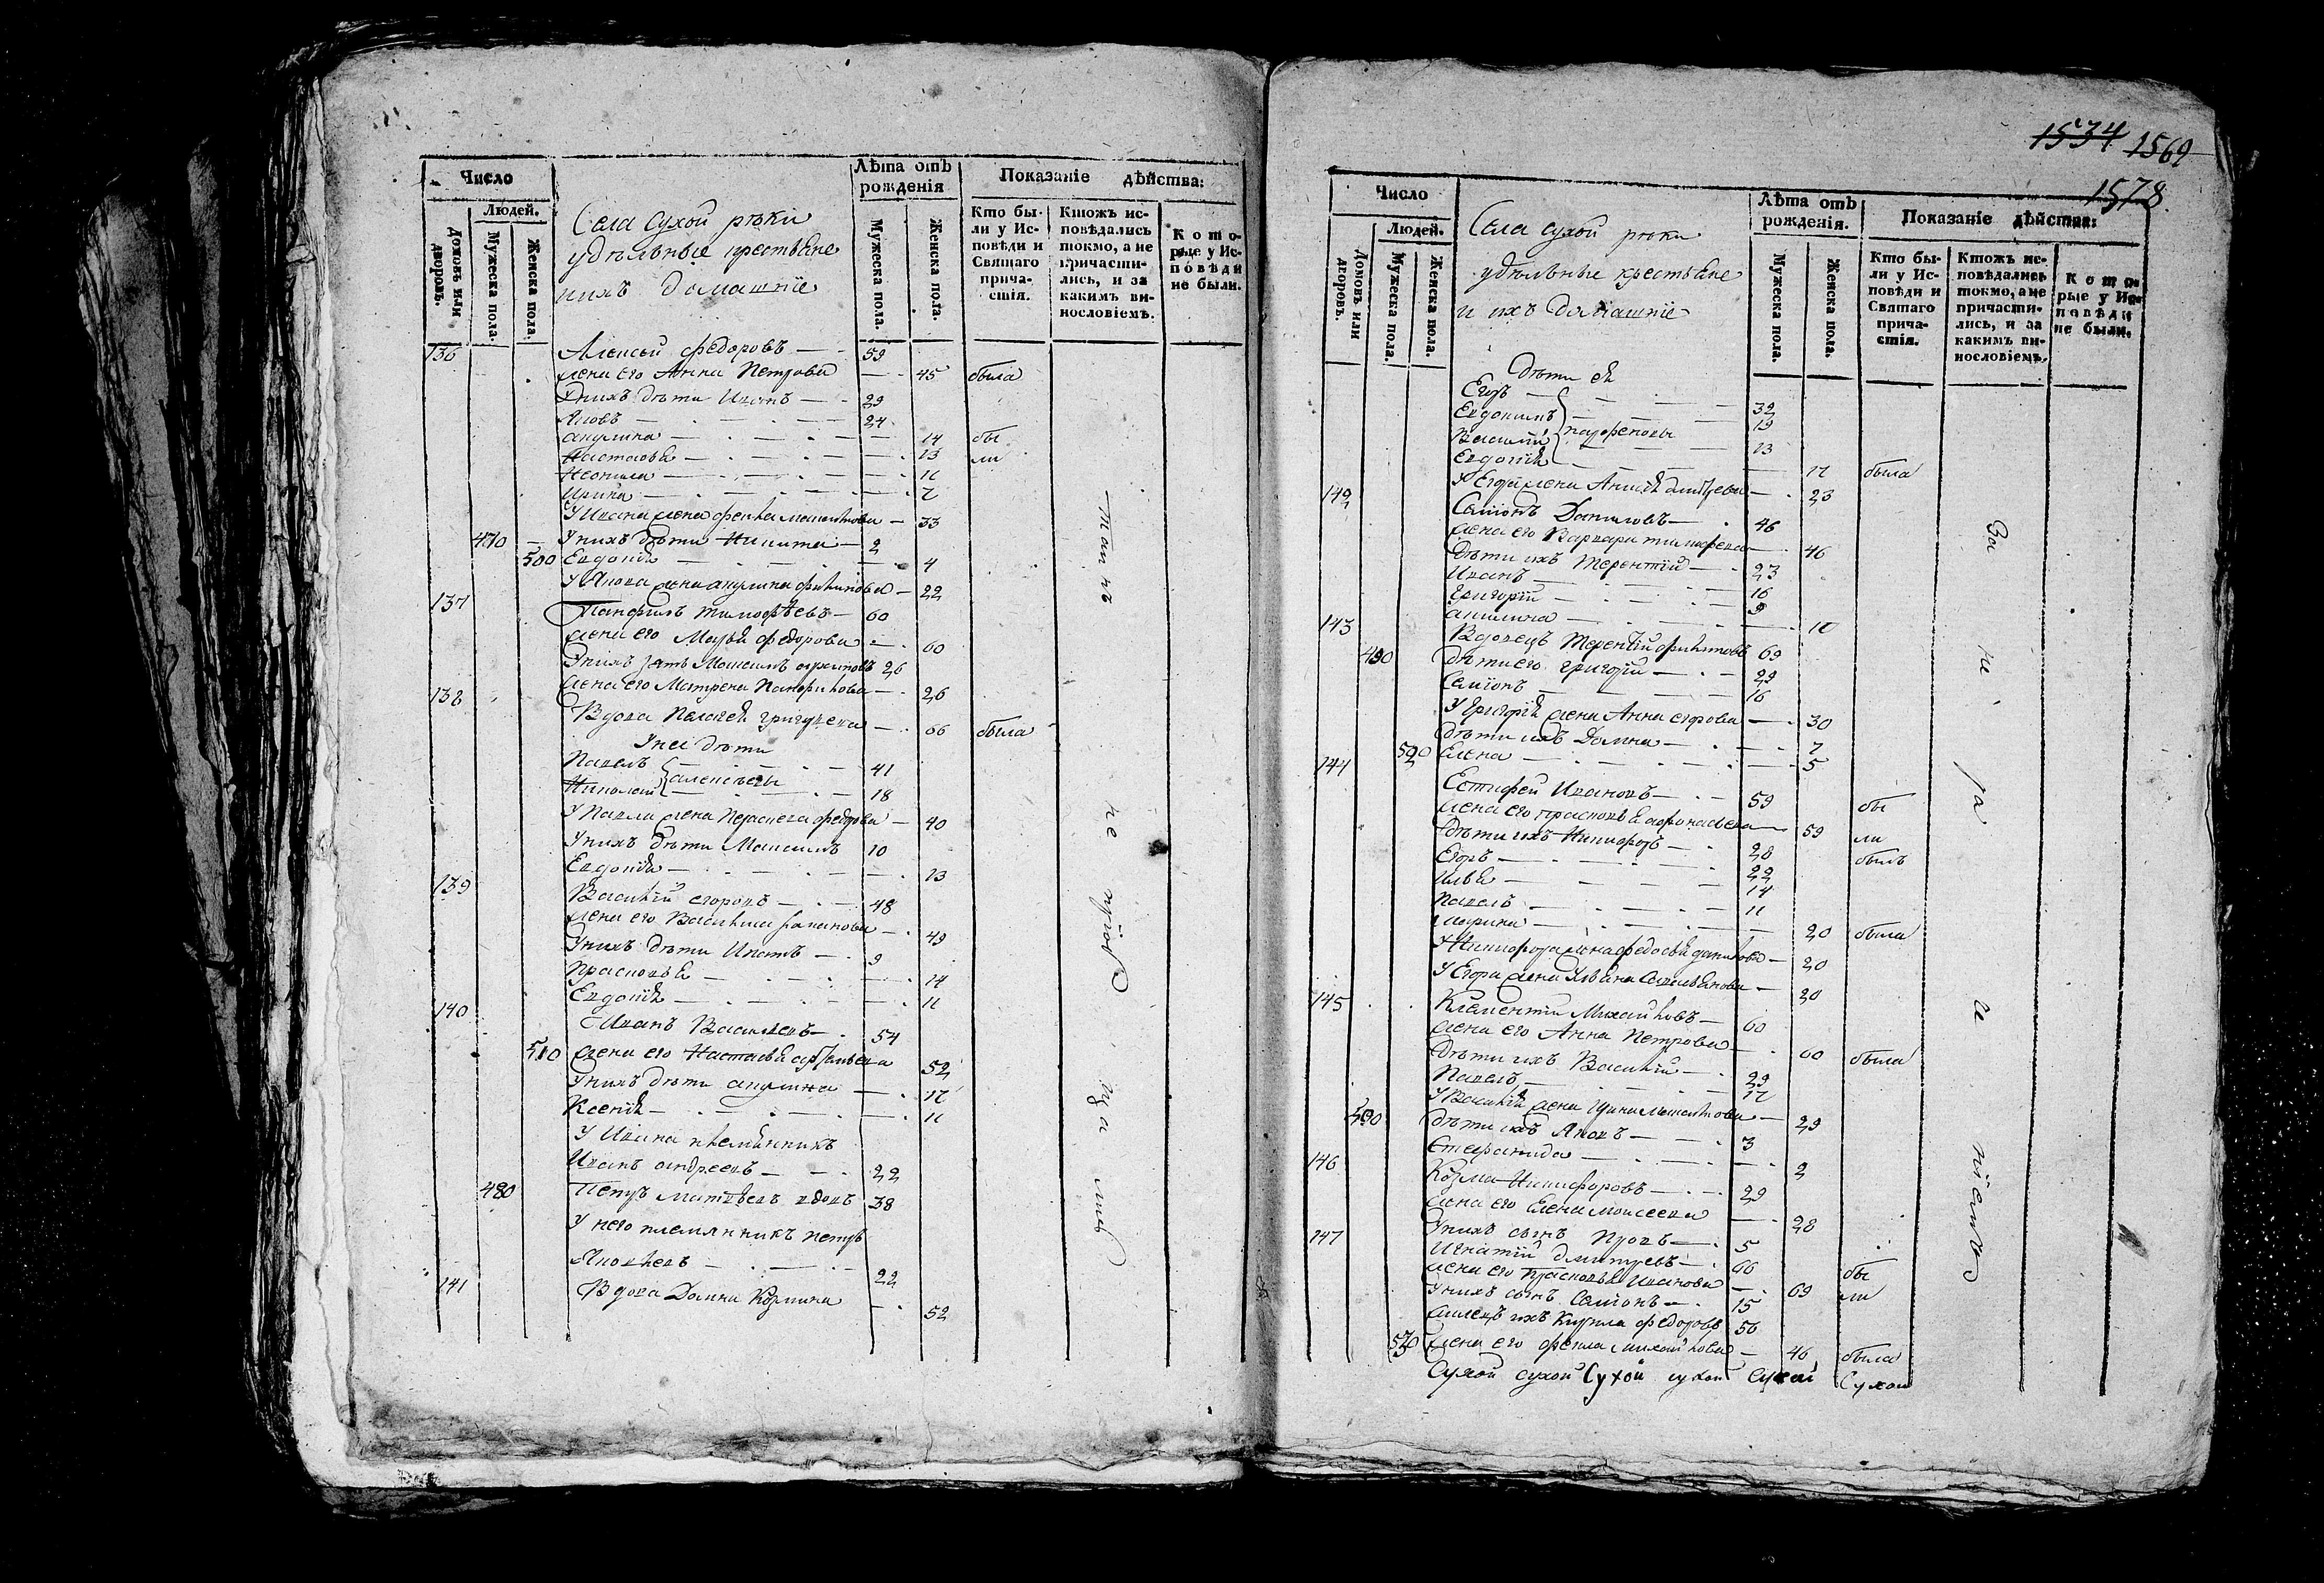 Число
Людей.
Домовъ или дворовъ.
Мужеска пола.
Женска пола.
Села Сухой рѣки
удѣльные крестьяне
ихъ домашніе
Лѣта отъ рожденія
Мужеска пола.
Женска пола.
Показаніе дѣйства:
Кто были у Исповѣди и Святаго причастія.
Ктожъ исповѣдались токмо, а не причастились, и за какимъ винословіемъ.
Которые у Исповѣди не были.
136 Алексей федоровъ — 59
жена его Анна Петрова — 45 была
У нихъ дѣти Иванъ — 29
Яковъ — 24
акулина — 14 бы
Настасья — 13 ли
Неонила — 11
Ирина — 7
У Ивана жена фекла — 33
470 У нихъ дѣти Никита — 2
500 Евдокія — 4
У Якова жена акулина — 22
137 Панфилъ тимофѣевъ — 60
жена его Марья федорова — 60
У нихъ зять Максимъ 26
жена его Матрена Панфилова — 26
138 Вдова Пелагея григорьева — 66 была
У ней дѣти
Павелъ — 41
Николай алексѣевы — 18
У Павла жена федорова — 40
У нихъ дѣти Максимъ 10
Евдокія — 13
139 Василій егоровъ — 48
жена его Василиса — 49
У нихъ дѣти Игнатъ — 9
Прасковья — 14
Евдокія — 11
140 Иванъ Васильевъ — 54
510 жена его Настасья 52
У нихъ дѣти акулина — 17
Ксенія — 11
У Ивана племянникъ
Иванъ андреевъ — 22
480 Петръ матвѣевъ вдовъ 38
У него племянникъ петръ
Яковлевъ — 22
141 Вдова Домна Козмина — 52
1534 1569
1578.
Число
Людей.
Домовъ или дворовъ.
Мужеска пола.
Женска пола.
Села Сухой рѣки
удѣльные крестьяне
и ихъ домашніе
Лѣта отъ рожденія.
Мужеска пола.
Женска пола.
Показаніе дѣйства:
Кто были у Исповѣди и Святаго причастія.
Ктожъ исповѣдались токмо, а не причастились, и за какимъ винословіемъ.
Которые у Исповѣди не были.
Дѣти ея
Егоръ — 32
Евдокимъ — 19
Василій парфеновы 13
Евдокія — 17 была
У Егора жена — 23
142 Самсонъ Даниловъ — 46
жена его Варвара тимофеева — 46
дѣти ихъ Терентій — 23
Иванъ — 16
Григорій — 9
акулина — 10
143 Вдовецъ Терентій филиповъ 69
490 дѣти его григорій — 29
Самсонъ — 16
У Григорія жена Анна егорова — 30
дѣти ихъ Домна — 7
520 Елена — 5
144 Естифей Ивановъ — 59 бы
жена его прасковья афонасьева — 59 ли
дѣти ихъ Никифоръ — 28 былъ
Егоръ — 22
Илья — 14
Павелъ — 11
Марина — 20 была
У Никифора жена федосья данилова — 20
У Егора жена Ульяна — 20
145 Клементій Михайловъ — 60
жена его Анна Петрова — 60 была
дѣти ихъ Василій — 29
Павелъ — 17
У Василія жена — 29
500 дѣти ихъ Яковъ — 3
Степанида — 2
146 Козма Никифоровъ — 29
жена его Елена моисеева — 28
У нихъ сынъ — 5
147 Игнатій дмитревъ — 66 бы
жена его прасковья Иванова — 69 ли
У нихъ сынъ Самсонъ — 15
ихъ Кирила федоровъ 56
530 жена его фекла михайлова — 46 была
Сухой сухой Сухой сухой Сухой Сухой